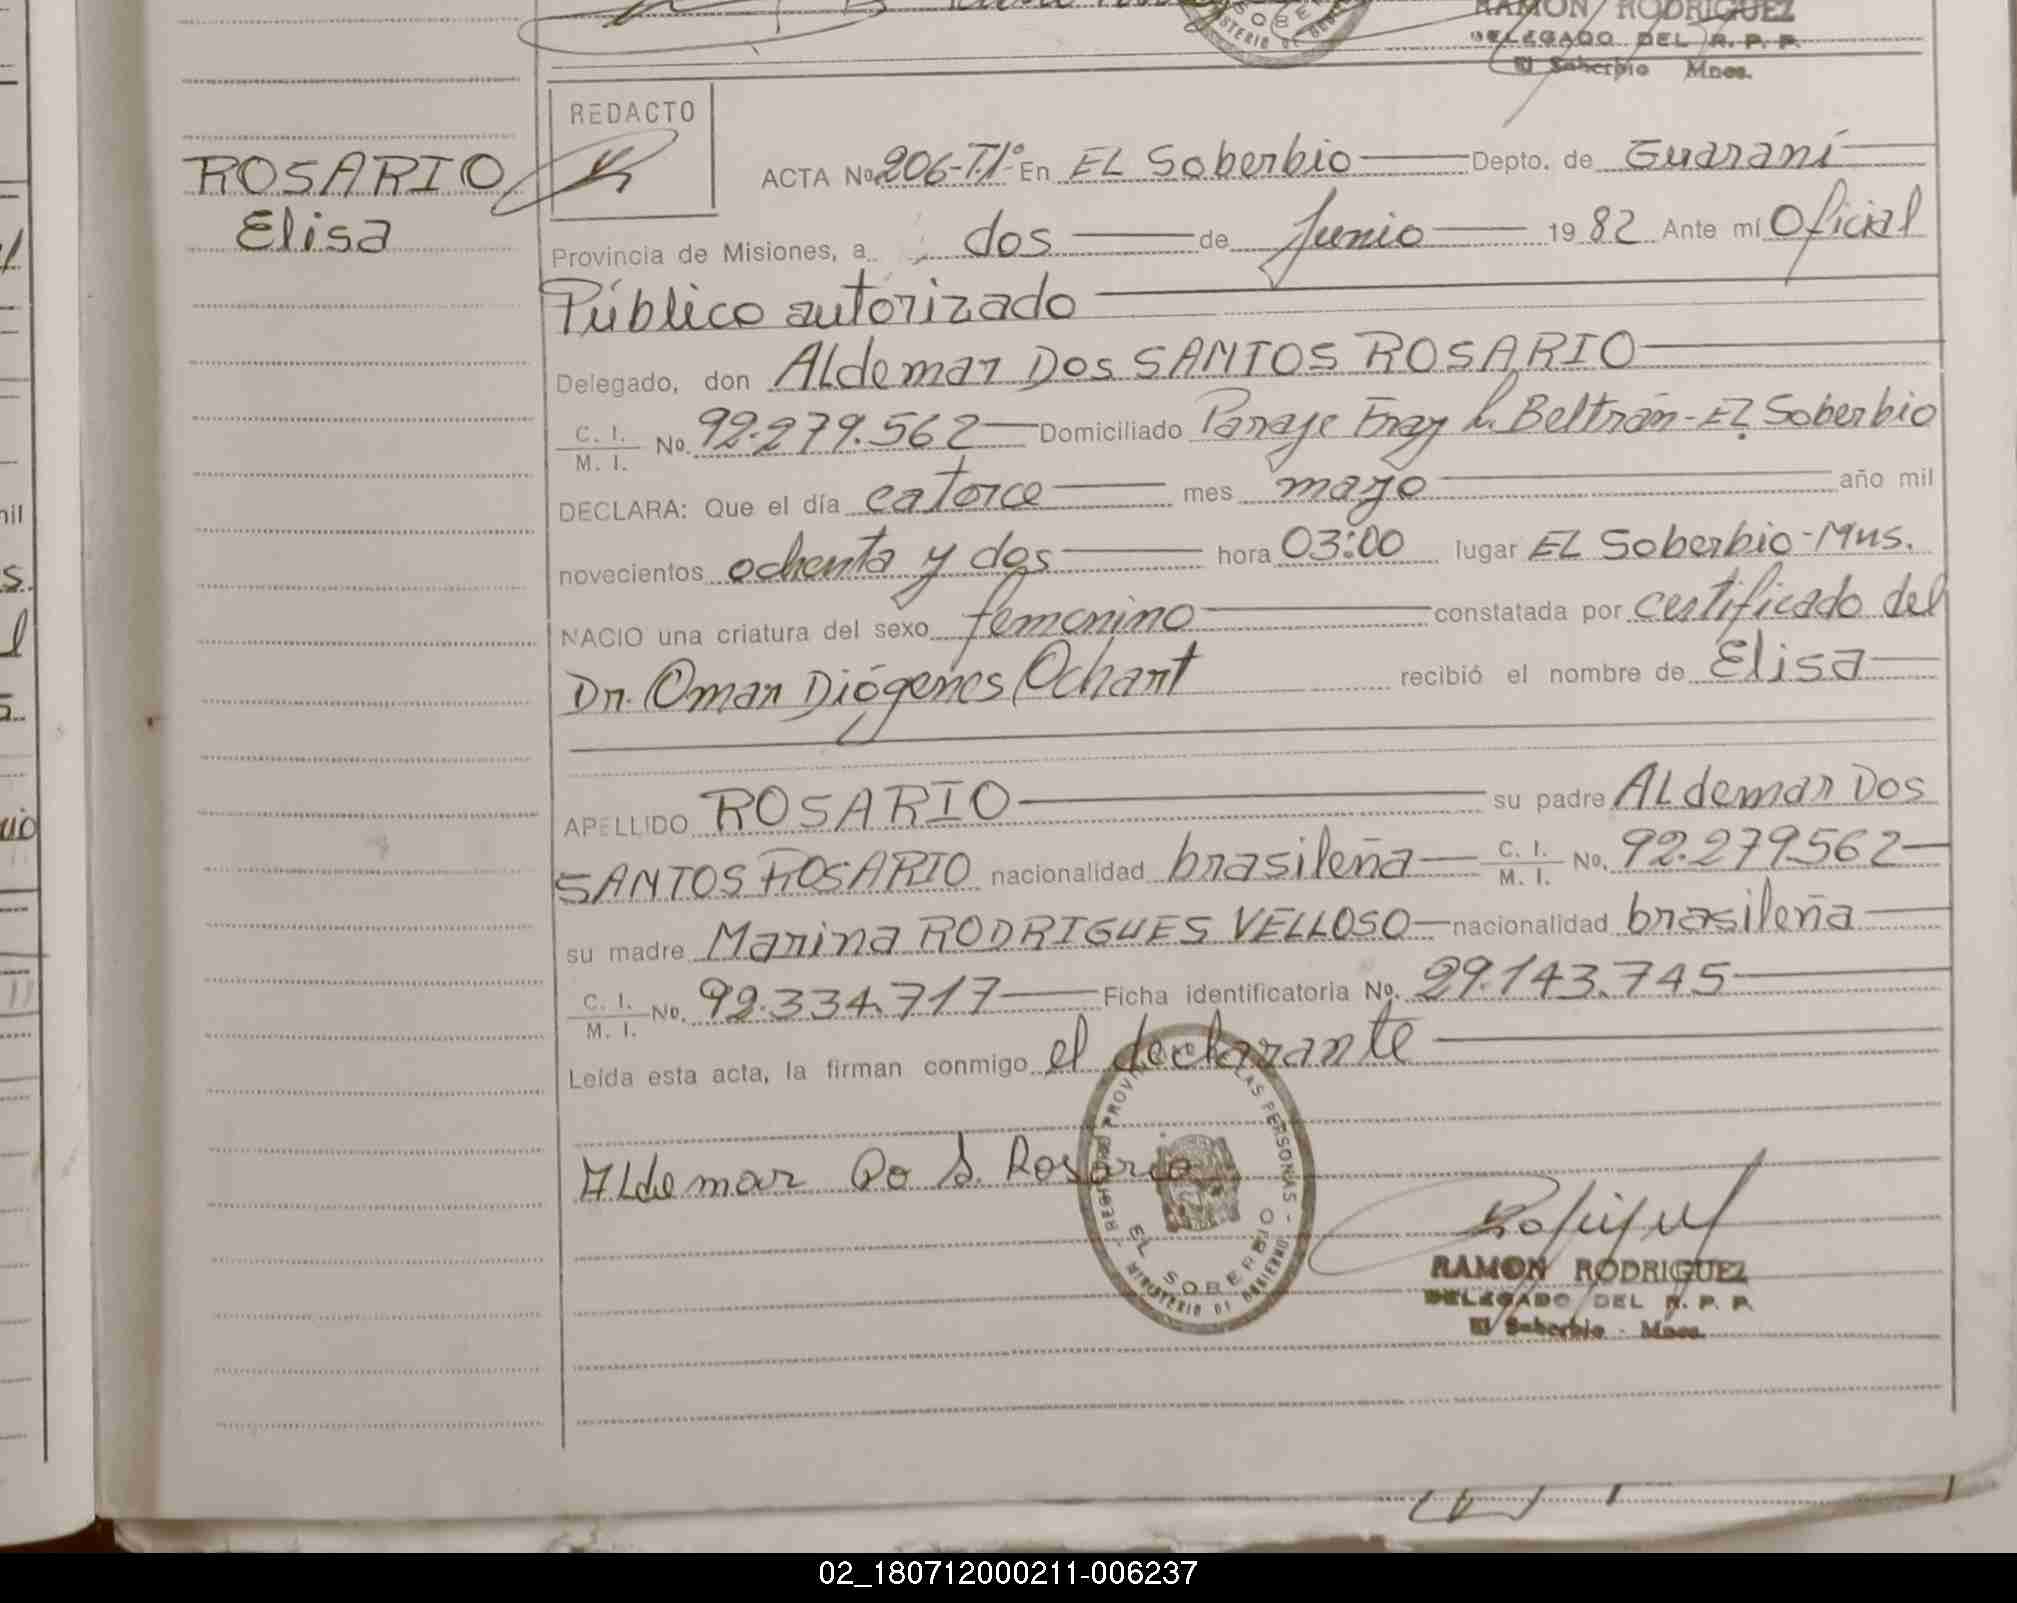 RAMON RODRIGUEZ
DELEGADO DEL R. P. P.
El Soberbio Mnes.
ROSARIO
Elisa
REDACTO
ACTA No. 206-T.1º En EL Soberbio Depto. de Guaraní
Provincia de Misiones, a dos de Junio 1982 Ante mí Oficial
Público autorizado
Delegado, don Aldemar Dos SANTOS ROSARIO
C. I. / M. I. No. 92.279.562 Domiciliado Paraje Fray L. Beltrán - El Soberbio
DECLARA: Que el día catorce mes mayo año mil
novecientos ochenta y dos hora 03:00 lugar EL Soberbio-Mns.
NACIO una criatura del sexo femenino constatada por certificado del
Dr. Omar Diógenes Ochart recibió el nombre de Elisa
APELLIDO ROSARIO su padre Aldemar Dos
SANTOS ROSARIO nacionalidad brasileña C. I. / M. I. No. 92.279.562
su madre Marina RODRIGUES VELLOSO nacionalidad brasileña
C. I. / M. I. No. 92.334.717 Ficha identificatoria No. 29.143.745
Leída esta acta, la firman conmigo el declarante
Aldemar Do S. Rosario
LAS PERSONAS
EL SOBERBIO
MINISTERIO DE GOBIERNO
RAMON RODRIGUEZ
DELEGADO DEL R. P. P.
El Soberbio - Mnes.
02_180712000211-006237